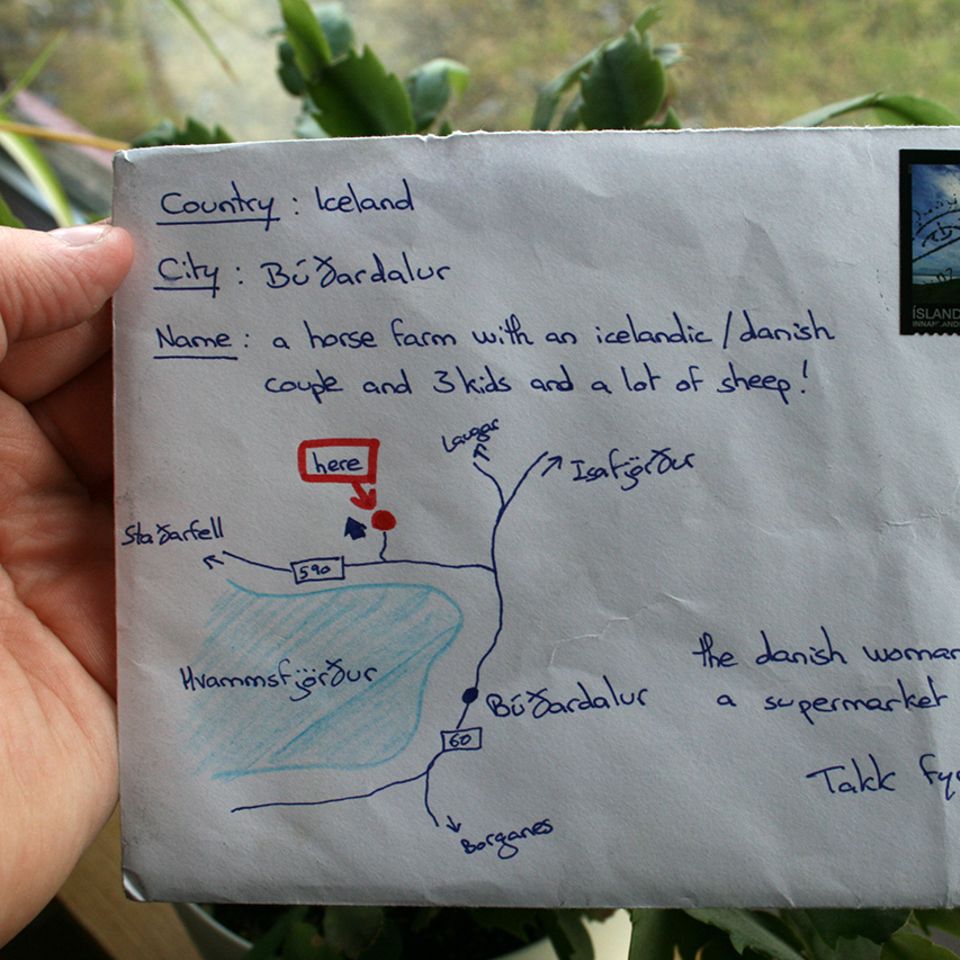 Country : Iceland
City : Búðardalur
Name : a horse farm with an icelandic / danish
couple and 3 kids and a lot of sheep!
ÍSLAND
INNANLANDS
here
Laugar
Isafjörður
Staðarfell
590
Hvammsfjörður
Búðardalur
60
Borganes
the danish woman
a supermarket
Takk